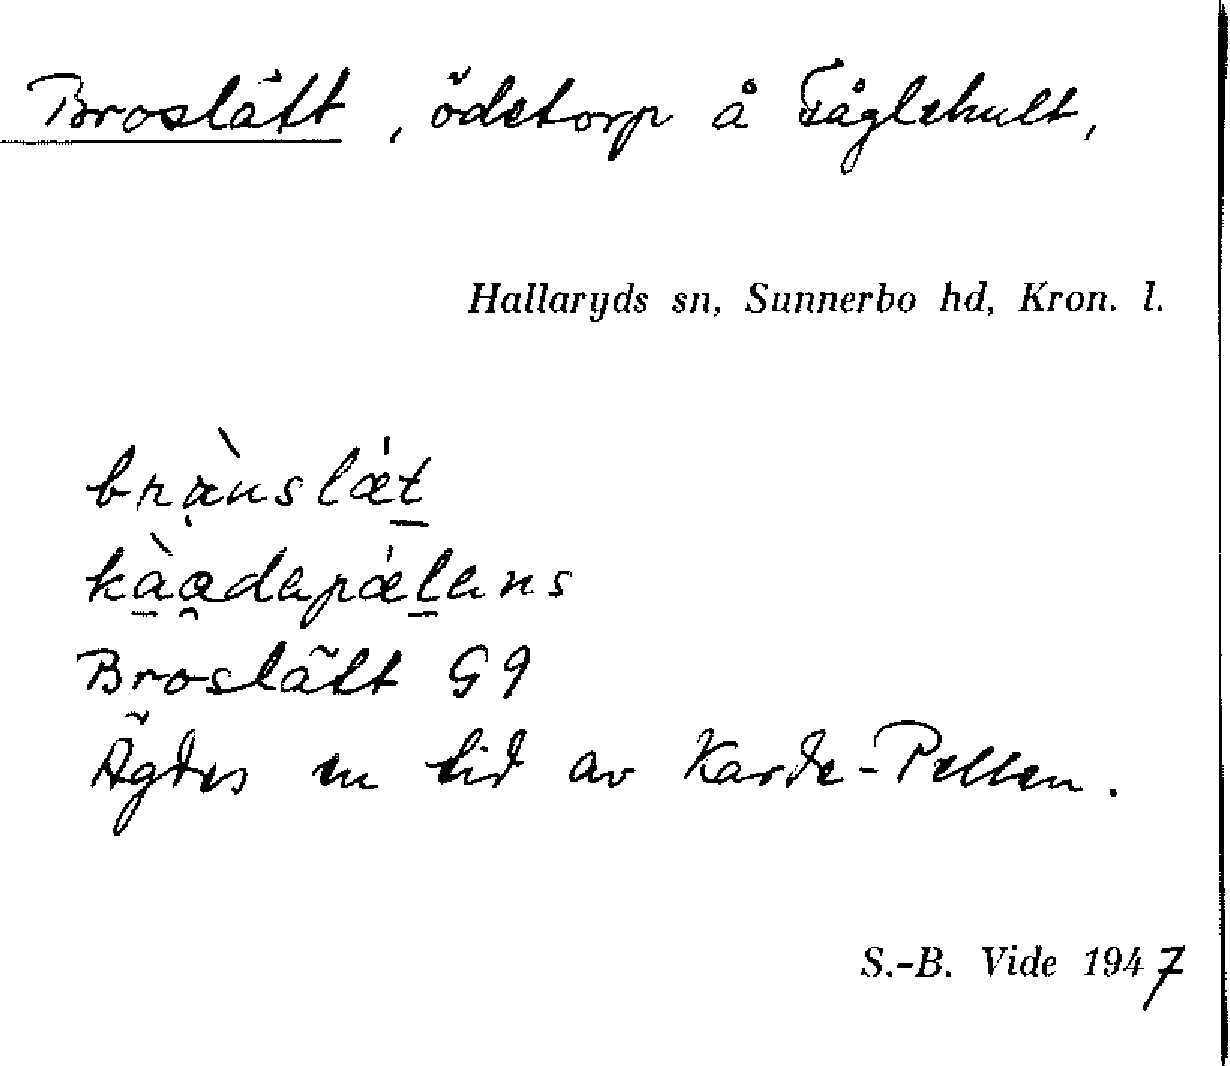 Broslätt, ödetorp å Fåglehult,
Hallaryds sn, Sunnerbo hd, Kron. l.
Broslätt G9
Ägdes en tid av Karde-Pellen.
S.-B. Vide 1947